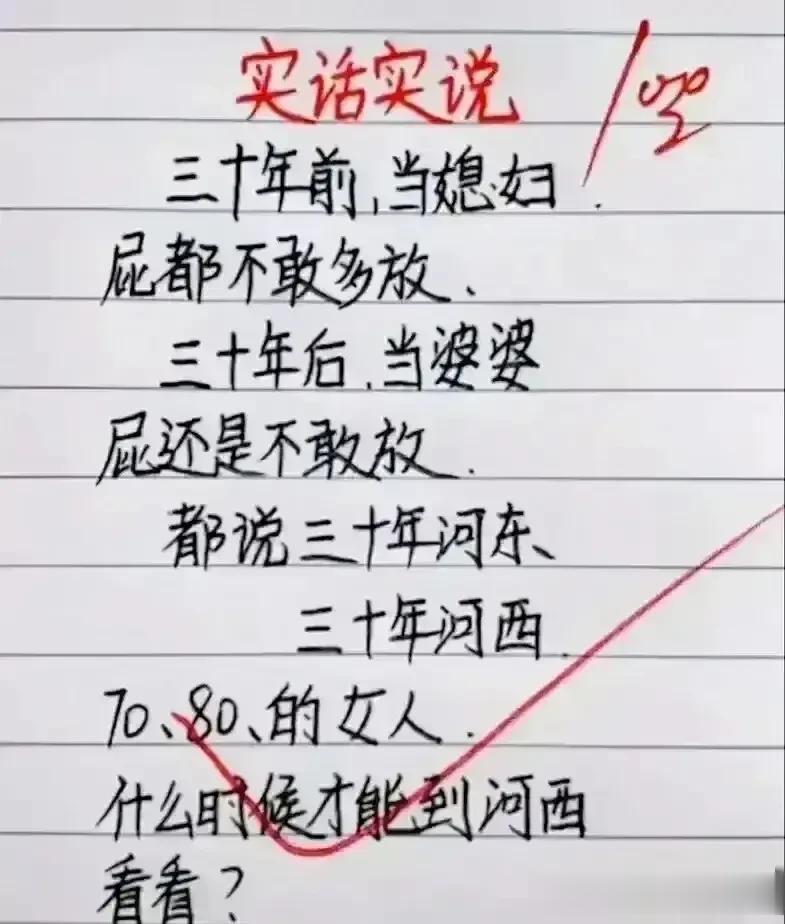 实话实说
三十年前,当媳妇.
屁都不敢多放.
三十年后,当婆婆
屁还是不敢放.
都说三十年河东、
三十年河西.
70、80、的女人.
什么时候才能到河西
看看?